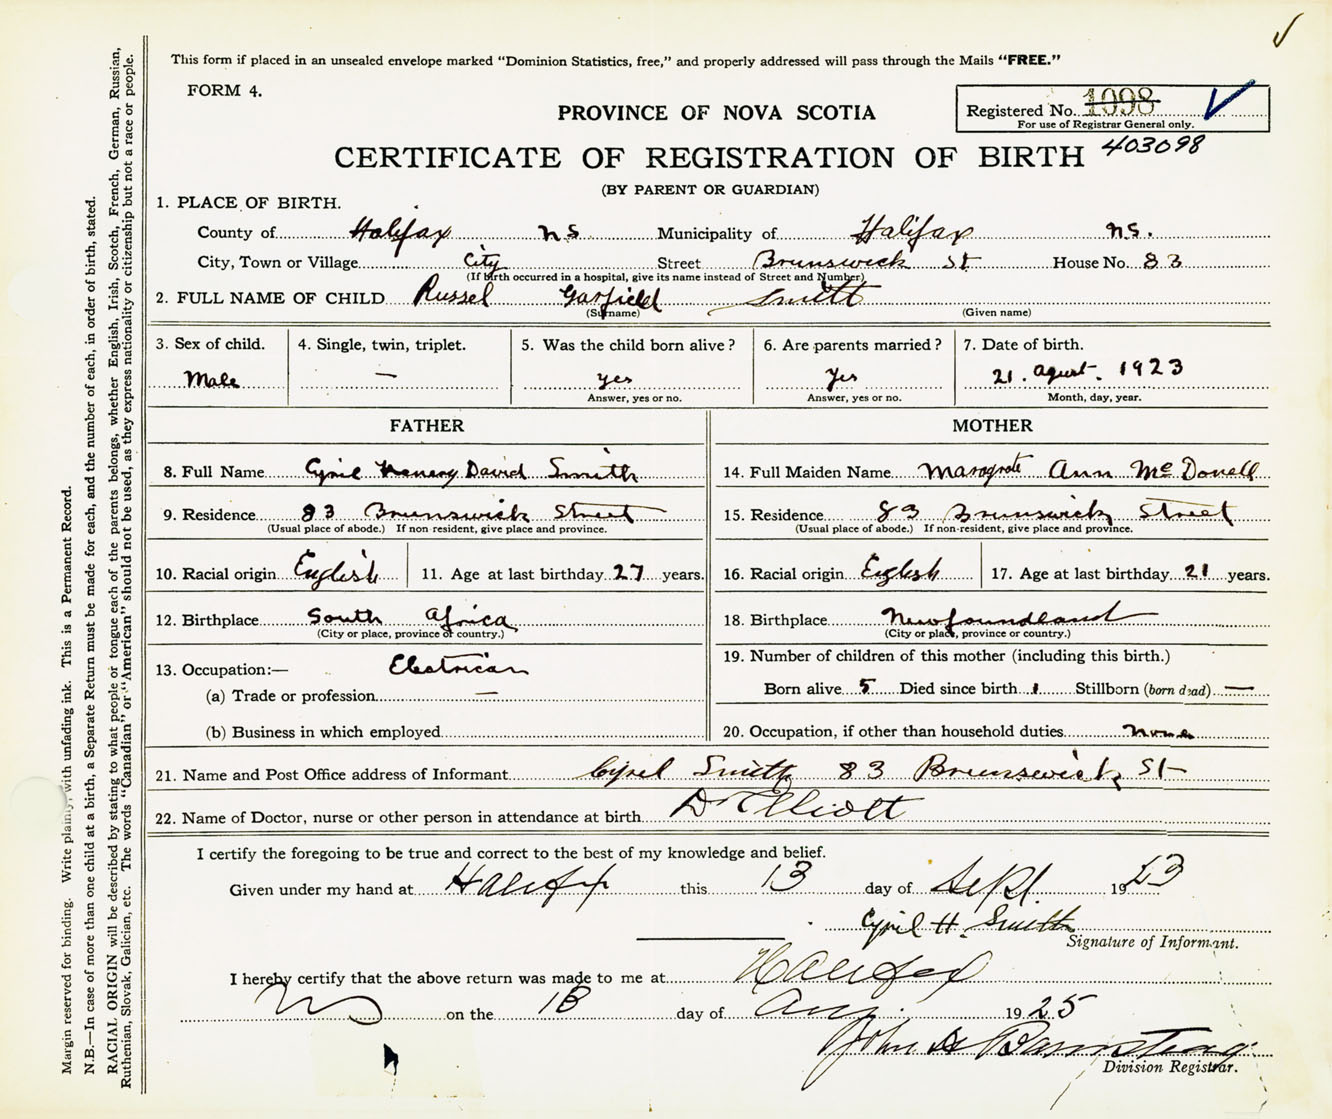 This form if placed in an unsealed envelope marked "Dominion Statistics, free," and properly addressed will pass through the Mails "FREE."
FORM 4.
PROVINCE OF NOVA SCOTIA
Registered No. 1098
For use of Registrar General only.
403098
CERTIFICATE OF REGISTRATION OF BIRTH
(BY PARENT OR GUARDIAN)
1. PLACE OF BIRTH.
County of Halifax NS Municipality of Halifax NS.
City, Town or Village City Street Brunswick St House No. 83
(If birth occurred in a hospital, give its name instead of Street and Number)
2. FULL NAME OF CHILD Russel Garfield Smith
(Surname) (Given name)
3. Sex of child. 4. Single, twin, triplet. 5. Was the child born alive? 6. Are parents married? 7. Date of birth.
Male — yes Yes 21. Agust. 1923
Answer, yes or no. Answer, yes or no. Month, day, year.
FATHER MOTHER
8. Full Name Cyril Henery David Smith 14. Full Maiden Name Margrete Ann McDonell
9. Residence 83 Brunswick Street 15. Residence 83 Brunswick Street
(Usual place of abode.) If non resident, give place and province. (Usual place of abode.) If non-resident, give place and province.
10. Racial origin English 11. Age at last birthday 27 years. 16. Racial origin English 17. Age at last birthday 21 years.
12. Birthplace South Africa 18. Birthplace Newfoundland
(City or place, province or country.) (City or place, province or country.)
13. Occupation:— Electrican 19. Number of children of this mother (including this birth.)
(a) Trade or profession — Born alive 5 Died since birth 1 Stillborn (born dead) —
(b) Business in which employed 20. Occupation, if other than household duties None
21. Name and Post Office address of Informant Cyril Smith 83 Brunswick St
22. Name of Doctor, nurse or other person in attendance at birth Dr Elliott
I certify the foregoing to be true and correct to the best of my knowledge and belief.
Given under my hand at Halifax this 13 day of Sept. 1923
Cyril H. Smith
Signature of Informant.
I hereby certify that the above return was made to me at Halifax
NS on the 13 day of Aug. 1925
John A
Division Registrar.
Margin reserved for binding. Write plainly, with unfading ink. This is a Permanent Record.
N.B.—In case of more than one child at a birth, a Separate Return must be made for each, and the number of each, in order of birth, stated.
RACIAL ORIGIN will be described by stating to what people or tongue each of the parents belongs, whether English, Irish, Scotch, French, German, Russian,
Ruthenian, Slovak, Galician, etc. The words "Canadian" or "American" should not be used, as they express nationality or citizenship but not a race or people.